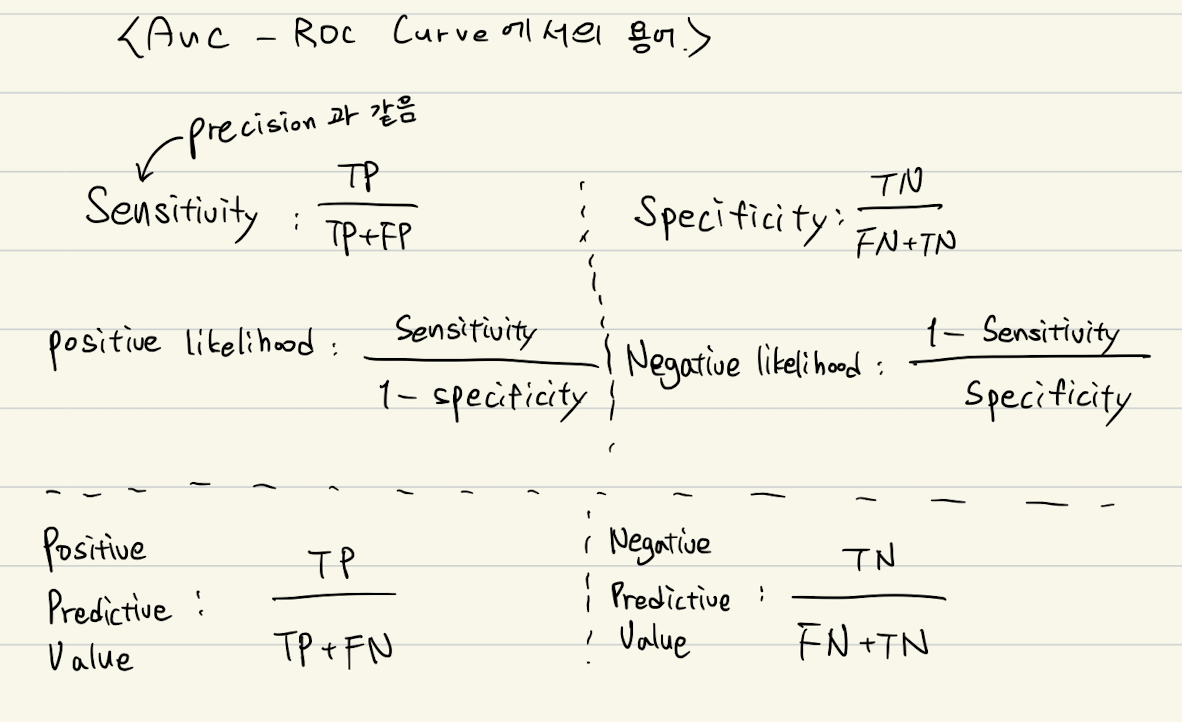 <Auc - Roc Curve에서의 용어.>
precision 과 같음
Sensitivity : TP / TP+FP
Specificity : TN / FN+TN
positive likelihood : Sensitivity / 1 - specificity
Negative likelihood : 1 - Sensitivity / Specificity
Positive
Predictive : TP / TP+FN
Value
Negative
Predictive : TN / FN+TN
Value